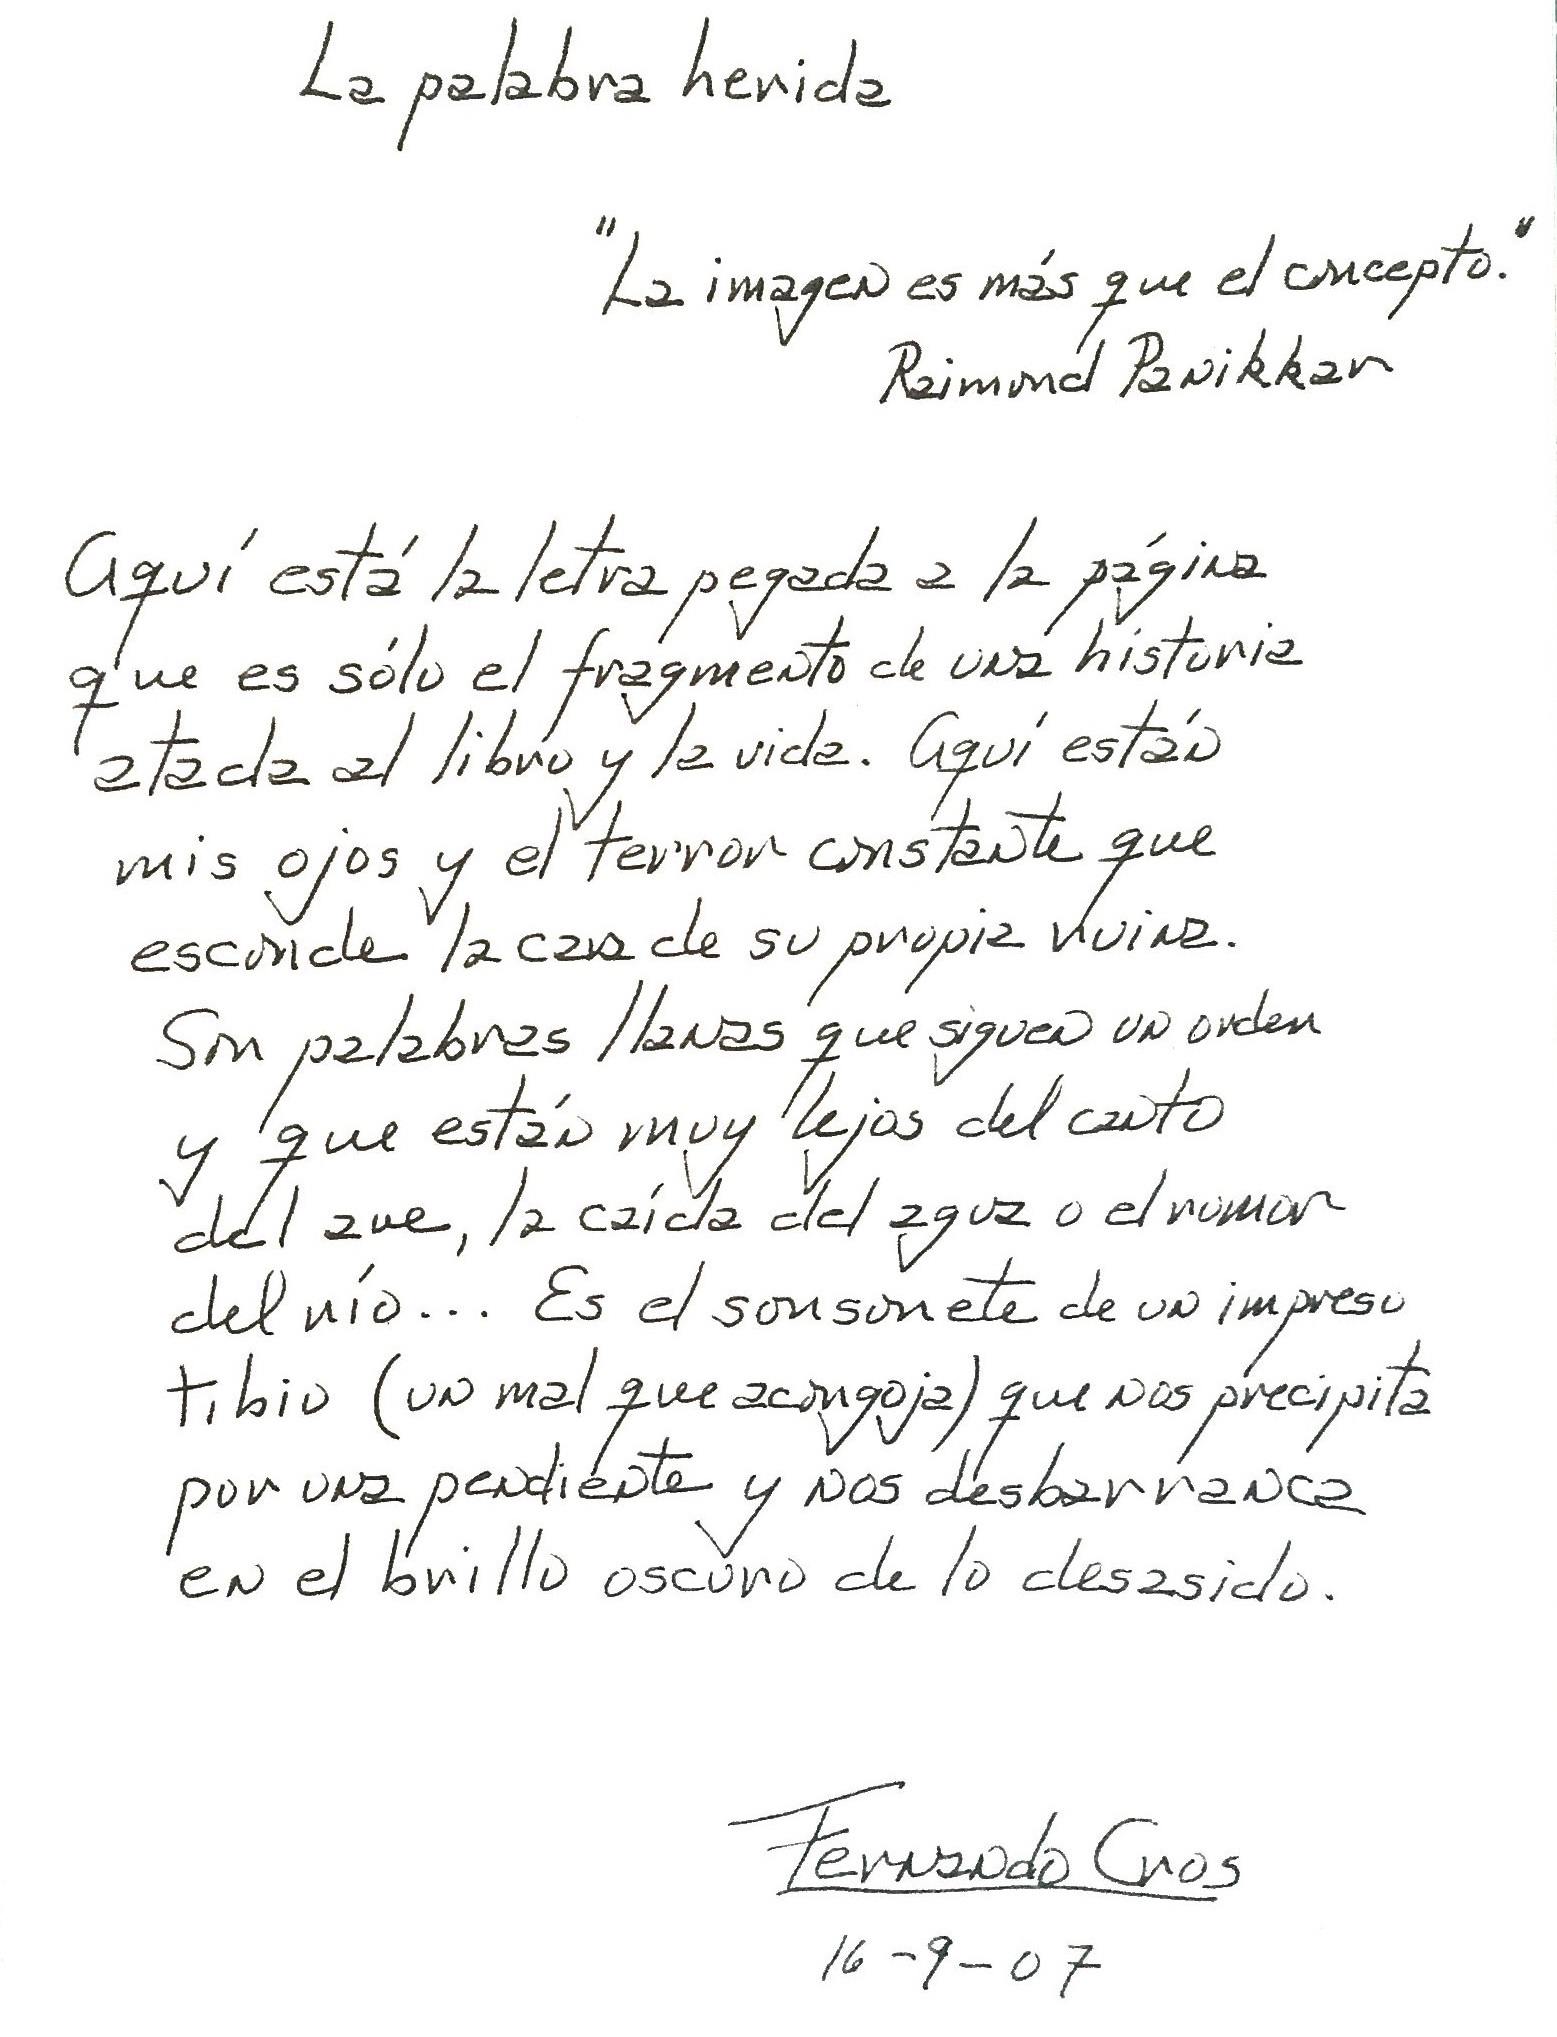 La palabra herida
"La imagen es más que el concepto."
Raimond Panikkar
Aquí está la letra pegada a la página
que es sólo el fragmento de una historia
atada al libro y la vida. Aquí están
mis ojos y el terror constante que
esconde la cara de su propia ruina.
Son palabras llanas que siguen un orden
y que están muy lejos del canto
del ave, la caída del agua o el rumor
del río... Es el sonsonete de un impreso
tibio (un mal que acongoja) que nos precipita
por una pendiente y nos desbarranca
en el brillo oscuro de lo desasido.
Fernando Cros
16-9-07